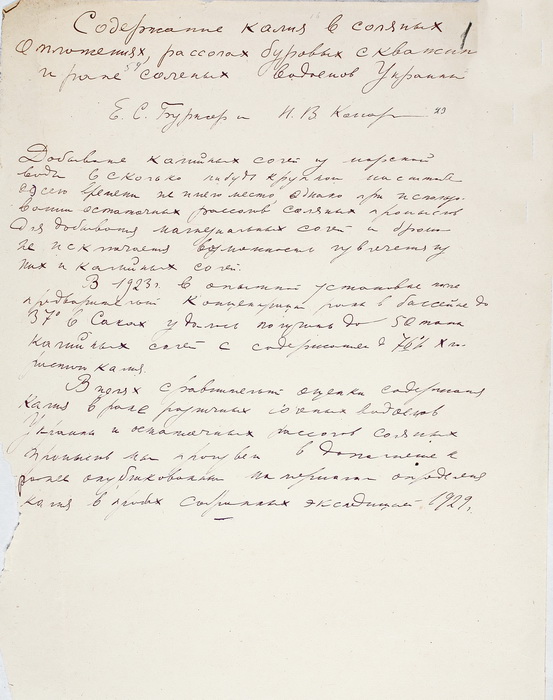 1
Содержание калия в соляных
отложениях, рассолах буровых скважин
и рапе соленых водоемов Украины
Е. С. Бурксер и
Добывание калийных солей из морской
воды в сколько нибудь крупном масштабе
до сего времени не имело место, однако при использо-
вании остаточных рассолов соляных промыслов
для добывания магнезиальных солей и брома
не исключается возможность извлечения из
них и калийных солей.
В 1923 г. в опытной установке при
предварительной концентрации рапы в бассейне до
37° в Саках удалось получить до 50 тонн
калийных солей с содержанием до 76% хло-
ристого калия.
В целях сравнительной оценки содержания
калия в рапе различных соленых водоемов
Украины и остаточных рассолов соляных
промыслов мы произвели в дополнение к
ранее опубликованным материалам определения
калия в пробах собранных экспедицией 1929 г.